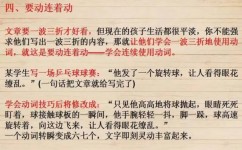 四、要动连着动
文章要一波三折才好看，但现在的孩子生活都很平淡，你不能强
求他们写出一波三折的内容，那就让他们学会一波三折地使用动
词，就是要让动词连着动词——学会连续使用动词。
某学生写一场乒乓球球赛：“他发了一个旋转球，让人看得眼花
缭乱。”（一句话把文章就给写完了）
学会动词技巧后将修改成：“只见他高高地将球抛起，眼睛死死
盯着，球接触球板的一瞬间，他手腕轻轻一抖，脚一跺，球就高速
旋转着，向这边飞来，让人看得眼花缭乱。”
一个动词转瞬变成六七个，文字即刻灵动丰富起来。